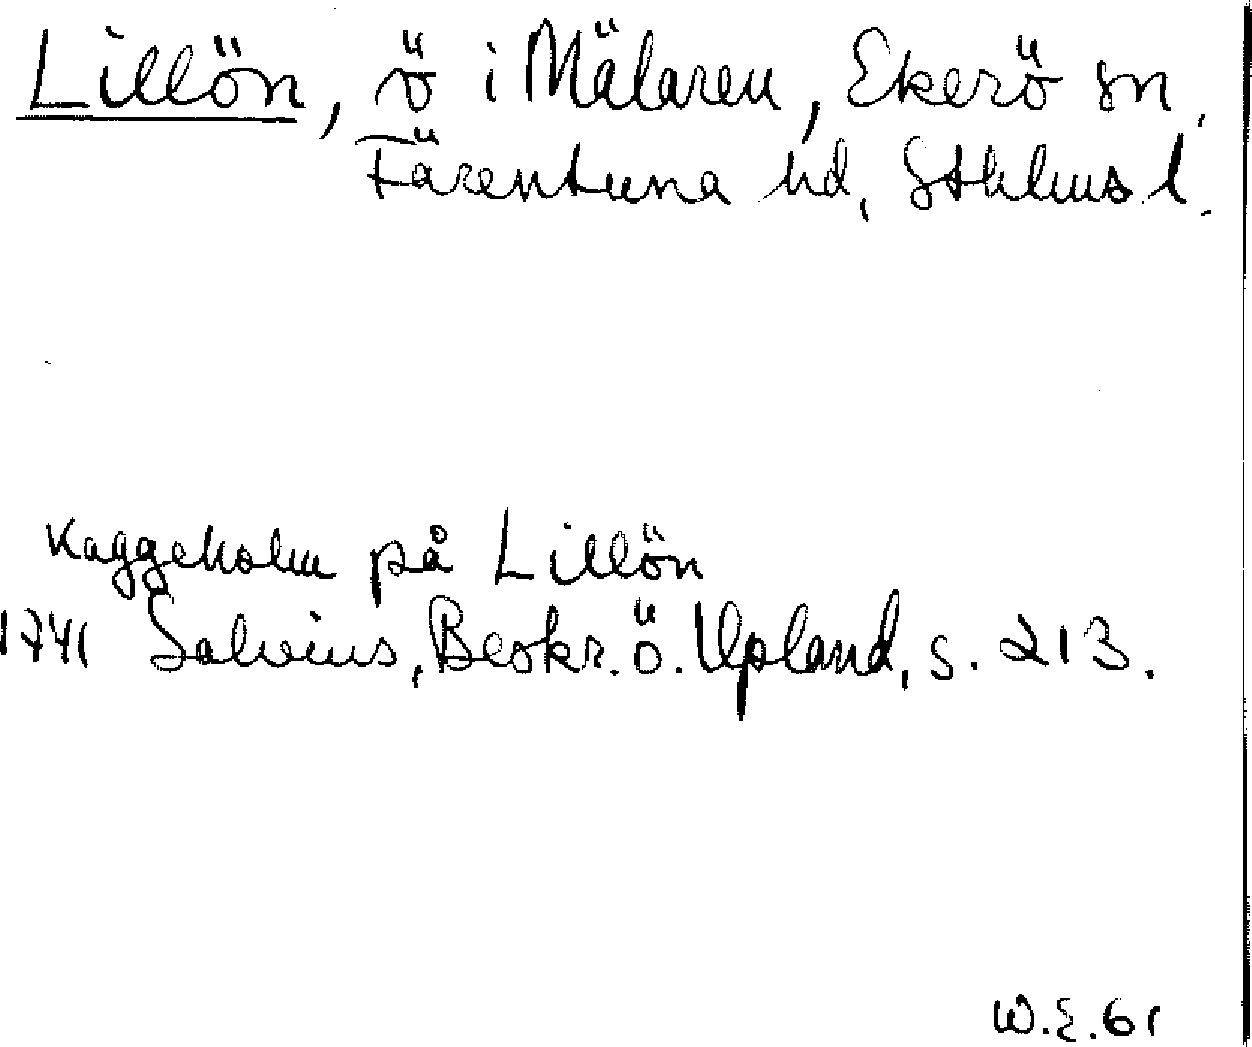 Lillön, ö i Mälaren, Ekerö sn,
Färentuna hd, Sthlms l.
Kaggeholm på Lillön
1741 Salvius, Beskr. ö. Upland, s. 213.
W.E. 61